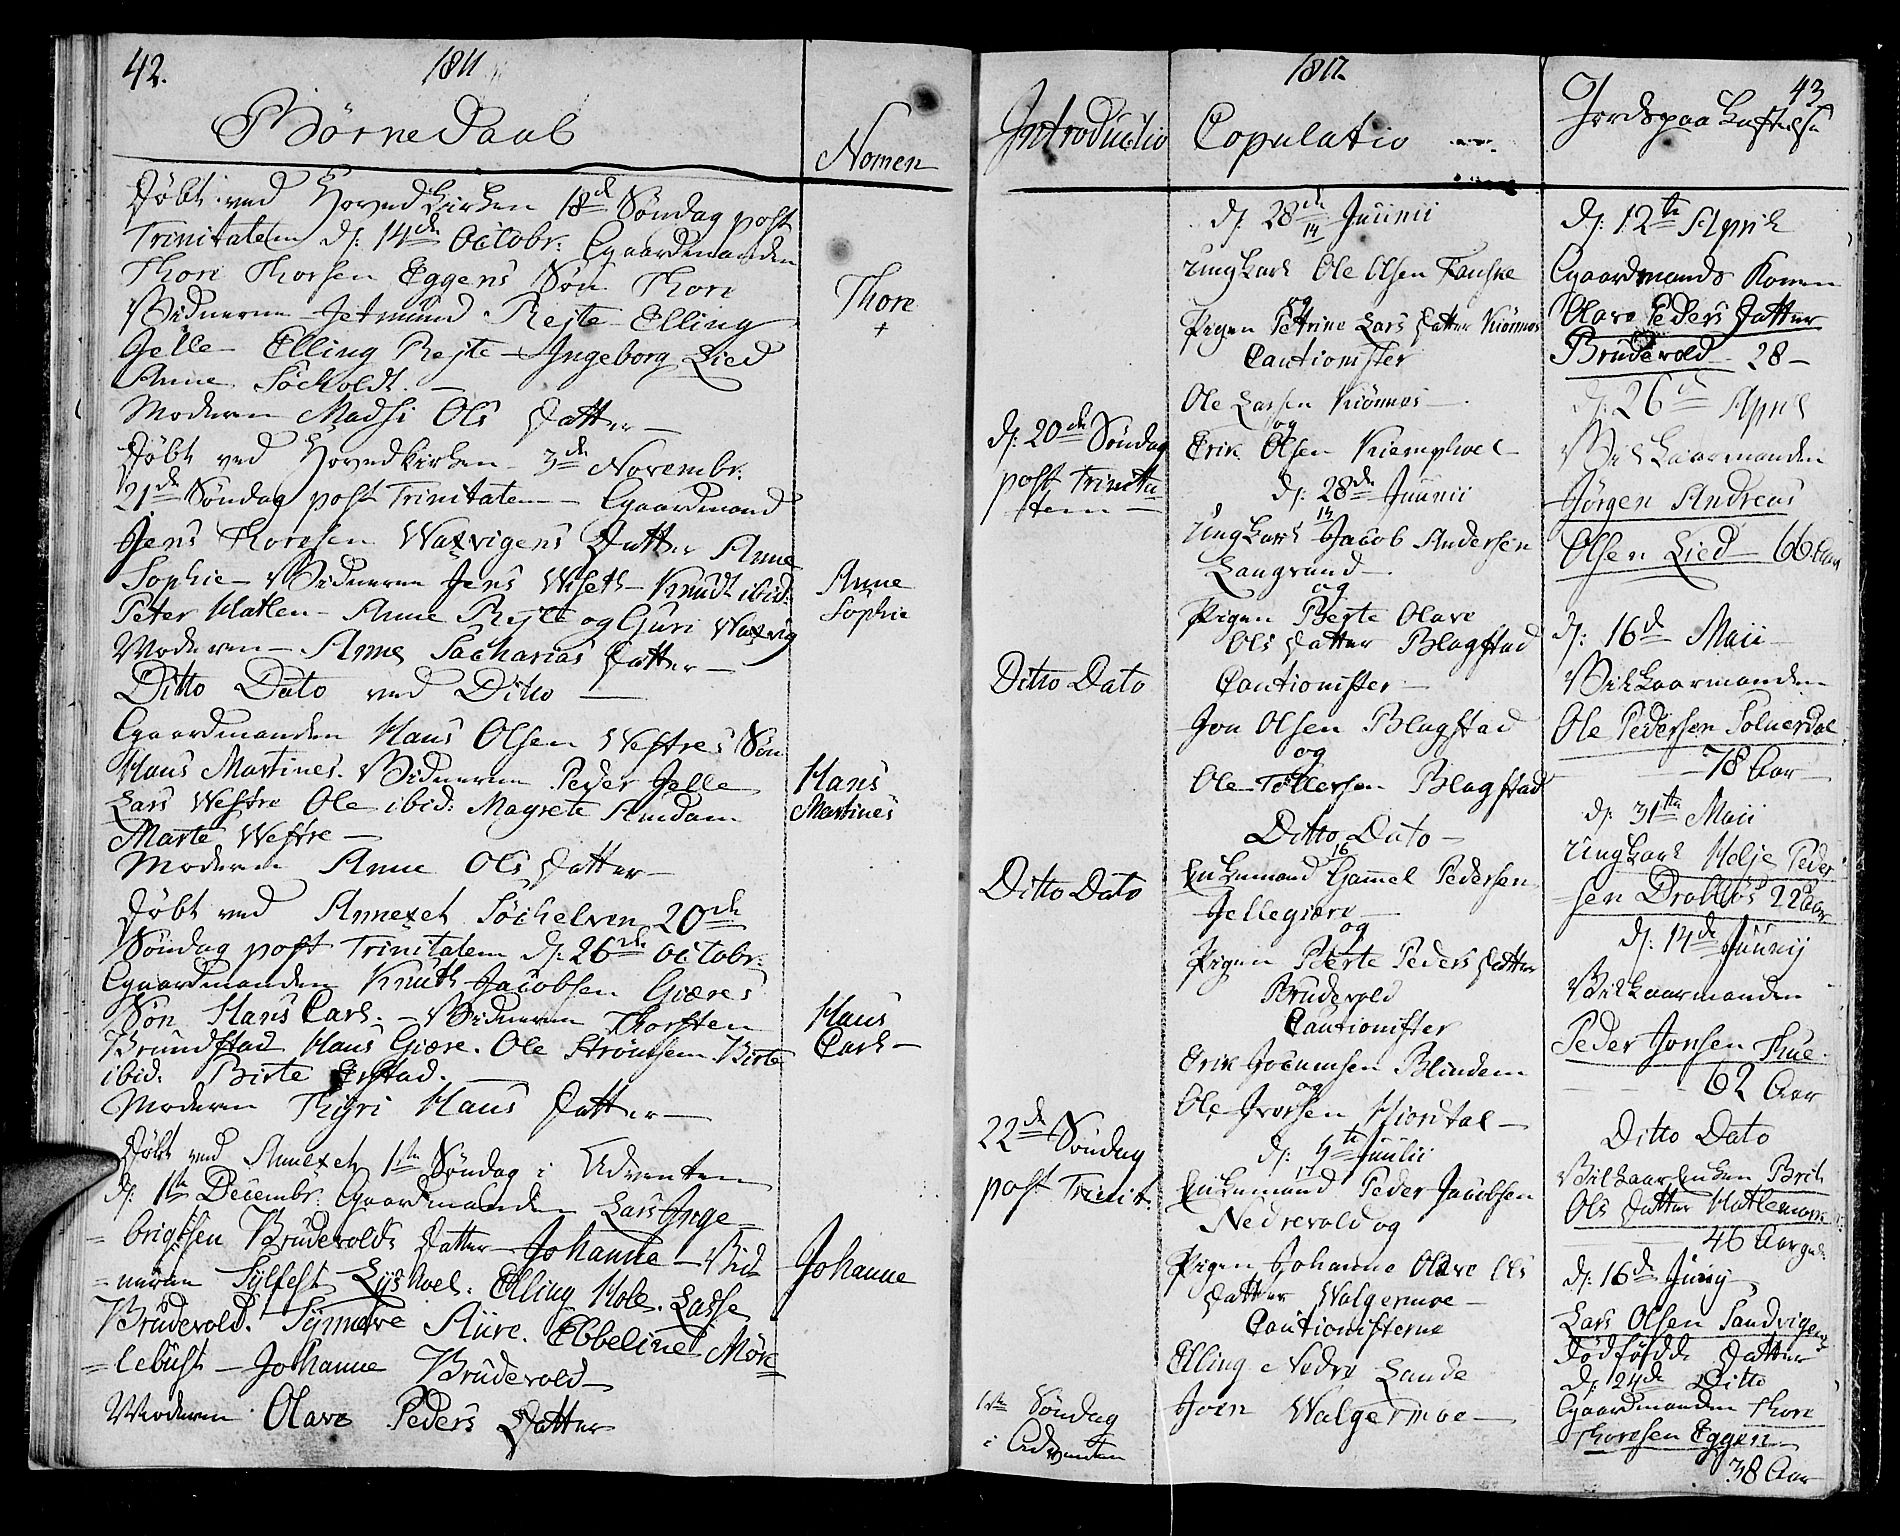 42.
1811
Børne Daab
Nomen
Døbt ved Hovedkirken 18de Søndag post
Trinitatem d: 14de Octobr. Gaardmanden
Thore Thorsen Eggens Søn Thore
Vidnerne Jetmund Rejte Elling
Gjelle Elling Rejte Ingeborg Lied
Anne Søeholdt.
Moderen Madsi Ols Datter
Thore
+
Døbt ved Hovedkirken 3de Novembr.
21de Søndag post Trinitatem Gaardmand
Jens Thoresen Waxvigens Datter Anne
Sophie Vidnerne Jens Wiseth Knudt ibid:
Peter Hatlen Anne Rejte og Guri Waxvig
Moderen Anne Sacharias Datter
Anne
Sophie
Ditto Dato ved Ditto
Gaardmanden Hans Olsen Westres Søn
Hans Martines. Vidnerne Peder Gjelle
Lars Westre Ole ibid: Magrete Amdam
Marte Westre
Moderen Anne Ols Datter
Hans
Martines
Døbt ved Annexet Søchelven 20de
Søndag post Trinitatem d: 26de Octobr.
Gaardmanden Knuth Jacobsen Giæres
Søn Hans Carl. Vidnerne Thorsten
Brundstad Hans Giære. Ole Strømsem Birte
ibid: Birte Erstad.
Moderen Thigri Hans Datter
Hans
Carl
Døbt ved Annexet 1ste Søndag i Adventen
d: 1ste Decembr. Gaardmanden Lars Inge=
=brigtsen Brudevolds Datter Johanne Vid
=nerne Sylfest Lyshoel. Elling Hole. Lasse
Brudevold. Synnøve Aure. Ebbeline Møre
=lebust Johanne Brudevold
Moderen Olave Peders Datter
Johanne
1812.
43
Introductio
Copulatio
Jordspaa Kastelse
d: 20de Søndag
post Trinita
tem
Ditto Dato
Ditto Dato
22de Søndag
post Trinit.
1ste Søndag
i Adventen
d: 28de Juunii
14
Ungkarl Ole Olsen Fauske
og
Pigen Petrine Lars Datter Kiørmos
Cautionister
Ole Lassen Kiørmos
og
Erik Olsen Kiemphoel
d: 28de Juunii
Ungkarl Jacob Andersen
Langrund
og
Pigen Berte Olave
Ols Datter Blagstad
Cautionister
Jon Olsen Blagstad
og
Ole Tollersen Blagstad
Ditto Dato
16
Enkemand Gammel Pedersen
Jellegiære
og
Pigen Berte Peders Datter
Brudevold
Cautionister
Erik Jocumsen Blindem
og
Ole Iversen Hiortdal
d: 4te Juulii
17
Enkemand Peder Jacobsen
Nedrevold og
Pigen Johanne Olave Ols
Datter Walgermoe
Cautionisterne
Elling Nedre Lande
Joen Walgermoe
d: 12te April
Gaardmands Konen
Olave Peders Datter
Brudevold 28
d: 26de April
Vilkaarmanden
Jørgen Andreas
Olsen Lied 66 Aar
d: 16de Maii
Vilkaarmanden
Ole Pedersen Solnerdal
78 Aar
d: 31te Maii
Ungkarl Helje Peder
sen Drabløs 22 Aar
d: 14de Juunij
Vilkaarmanden
Peder Jonsen Thue
62 Aar
Ditto Dato
Vilkaarenken Brit
Ols Datter Hatlemoe
46 Aar
d: 16de Junij
Lars Olsen Sandvigens
Dødfødde Datter
d: 24de Ditto
Gaardmanden Thore
Thoresen Eggen
38 Aar